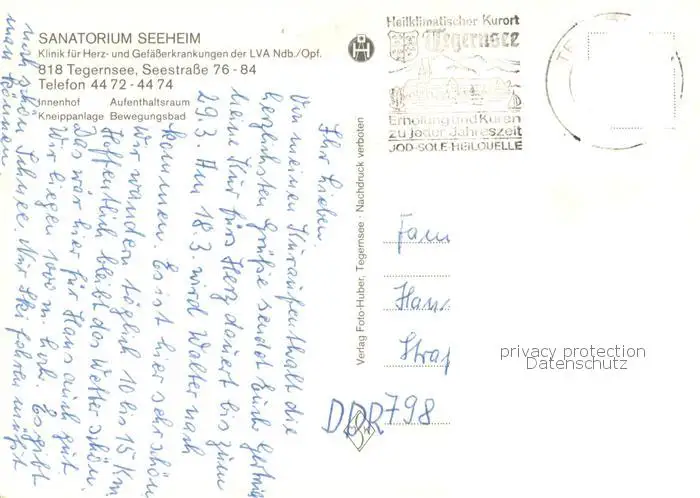 SANATORIUM SEEHEIM
Klinik für Herz- und Gefäßerkrankungen der LVA Ndb./Opf.
818 Tegernsee, Seestraße 76 - 84
Telefon 44 72 - 44 74
Innenhof Aufenthaltsraum
Kneippanlage Bewegungsbad
Ihr Lieben,
Von meinem Kuraufenthalt die
herzlichsten Grüße sendet Euch
Meine Kur fürs Herz dauert bis zum
29.3. Am 18.3. wird Walter nach
kommen. Es ist hier sehr schön
Wir wandern täglich 10 bis 15 Km.
Hoffentlich bleibt das Wetter schön.
Das wär hier für Hans auch gut
Wir liegen 1000 m hoch. Es gibt
noch schön Schnee. Nur Ski fahren
man können.
Verlag Foto-Huber, Tegernsee · Nachdruck verboten
Heilklimatischer Kurort
Tegernsee
Erholung und Kuren
zu jeder Jahreszeit
JOD-SOLE-HEILQUELLE
TE
Fam
Hans
Straß
DDR 798
privacy protection
Datenschutz